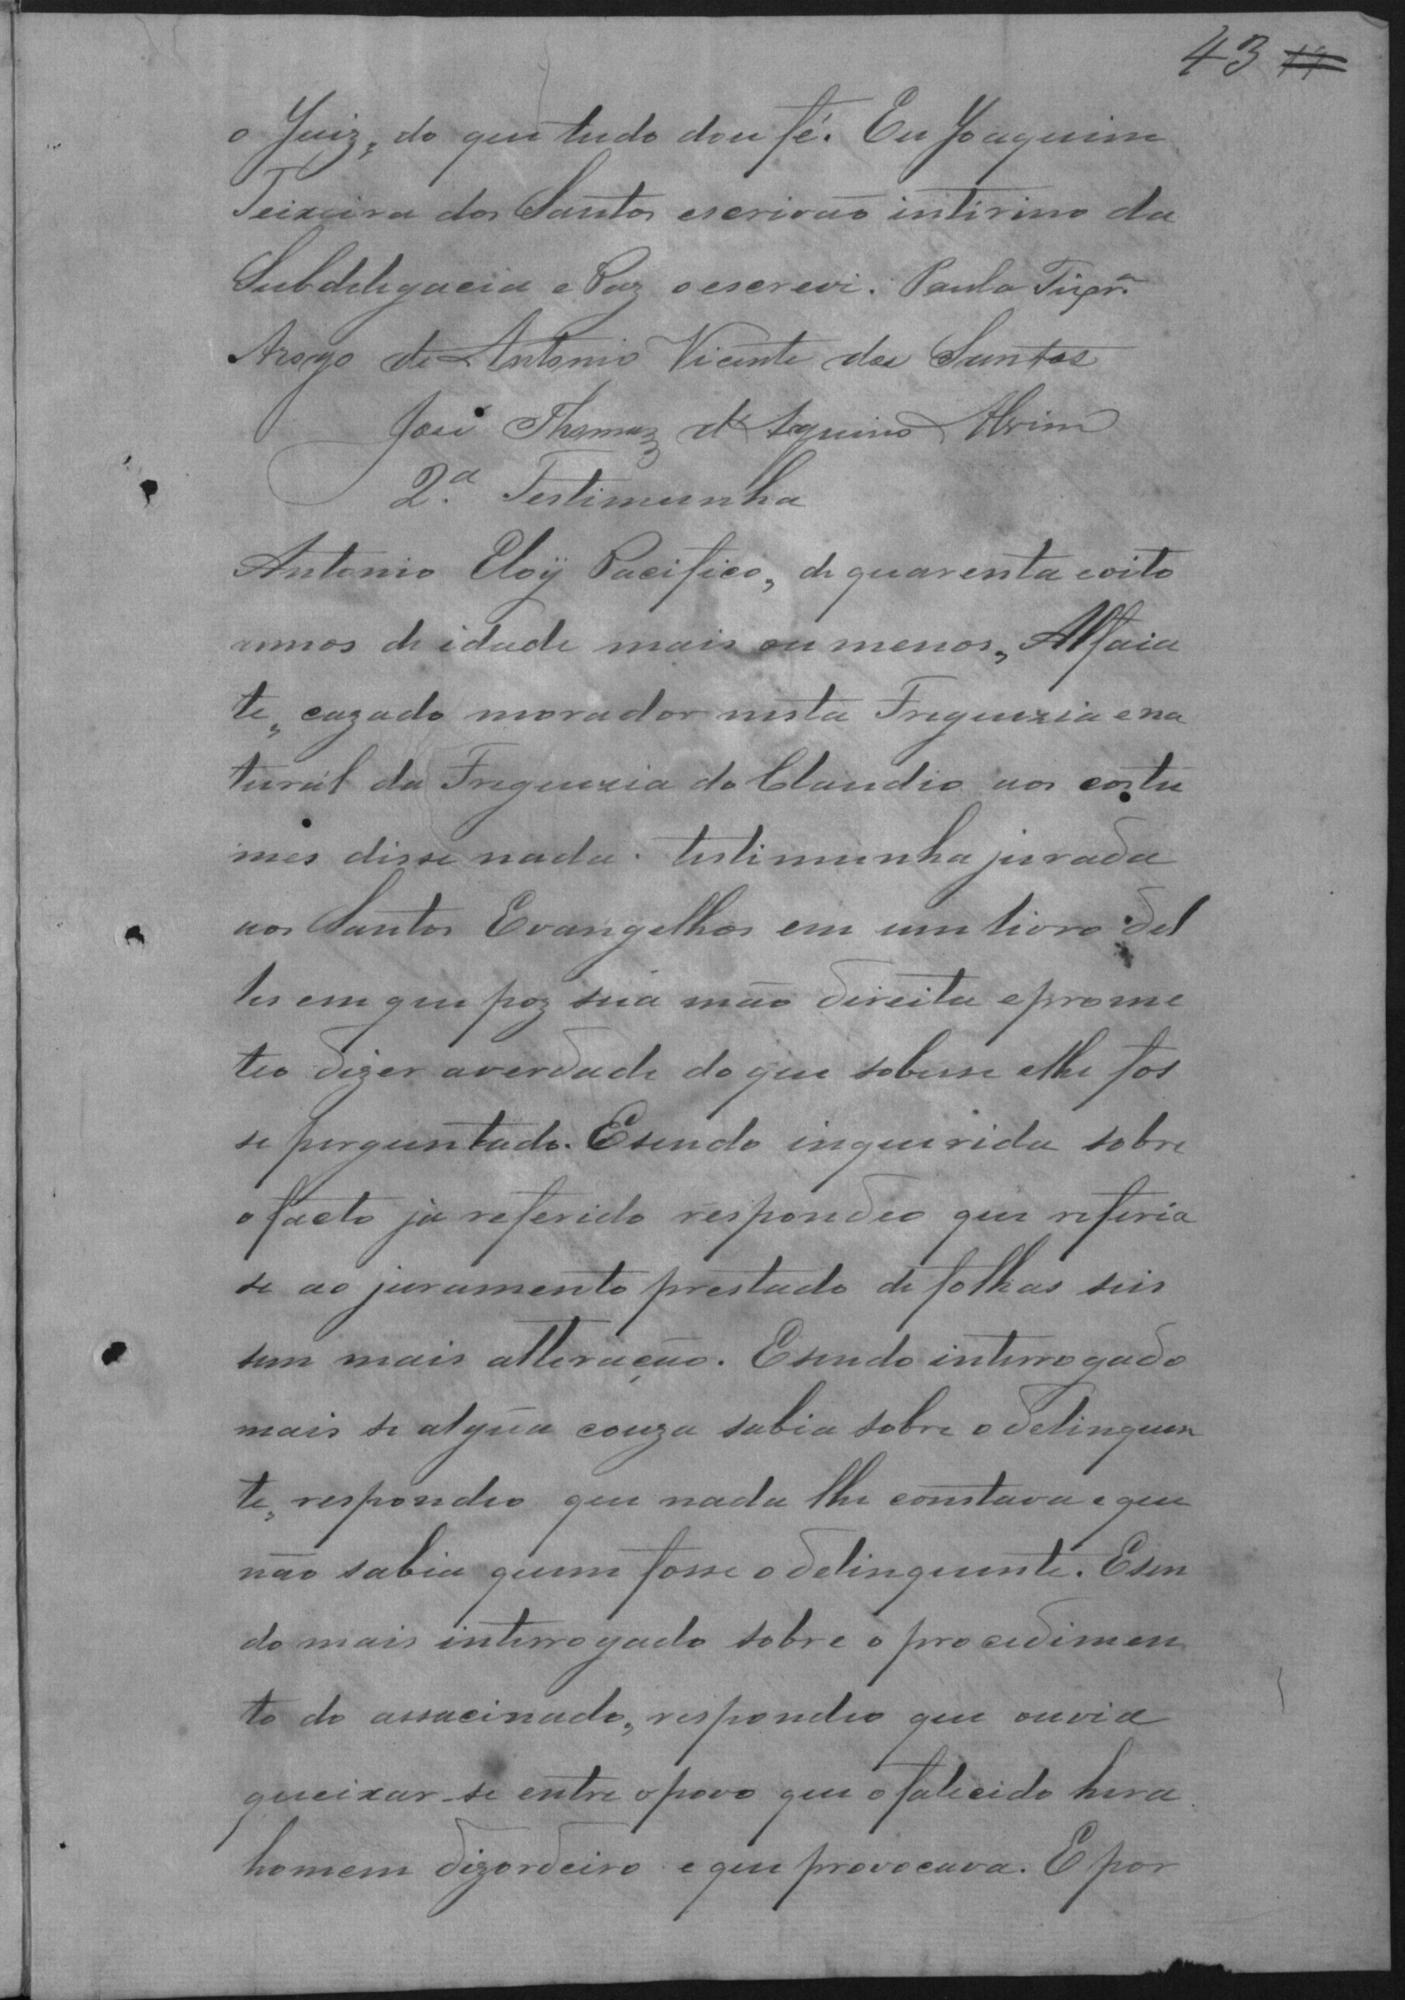 43 11
o Juiz, do que tudo dou fé. Eu Joaquim
Teixeira dos Santos escrivão intirino da
Subdelegacia e Paz o escrevi. Paula Tixrª
Arogo de Antonio Vicente dos Santos
José Thomaz d'Aquino Alvim
2.ª Testimunha
Antonio Eloÿ Pacifico, de quarenta eoito
annos de idade mais ou menos, Alfaia
te, cazado morador nesta Freguezia ena
turál da Freguezia do Claudio aos costu
mes disse nada. testimunha jurada
aos Santos Evangelhos em um livro del
les em que poz sua mão direita eprome
teo dizer averdade do que sobesse elhe fos
se perguntado. Esendo inquirida sobre
o facto ja referido respondeo que referia
se ao juramento prestado de folhas seis
sem mais alteração. Esendo interrogado
mais se algũa couza sabia sobre o delinquen
te, respondeo que nada lhe constava eque
não sabia quem fosse o delinquente. Esen
do mais interrogado sobre o procedimen
to do assacinado, respondeo que ouvia
queixar-se entre opovo que o falecido hera
homem dizordeiro e que provocava. E por